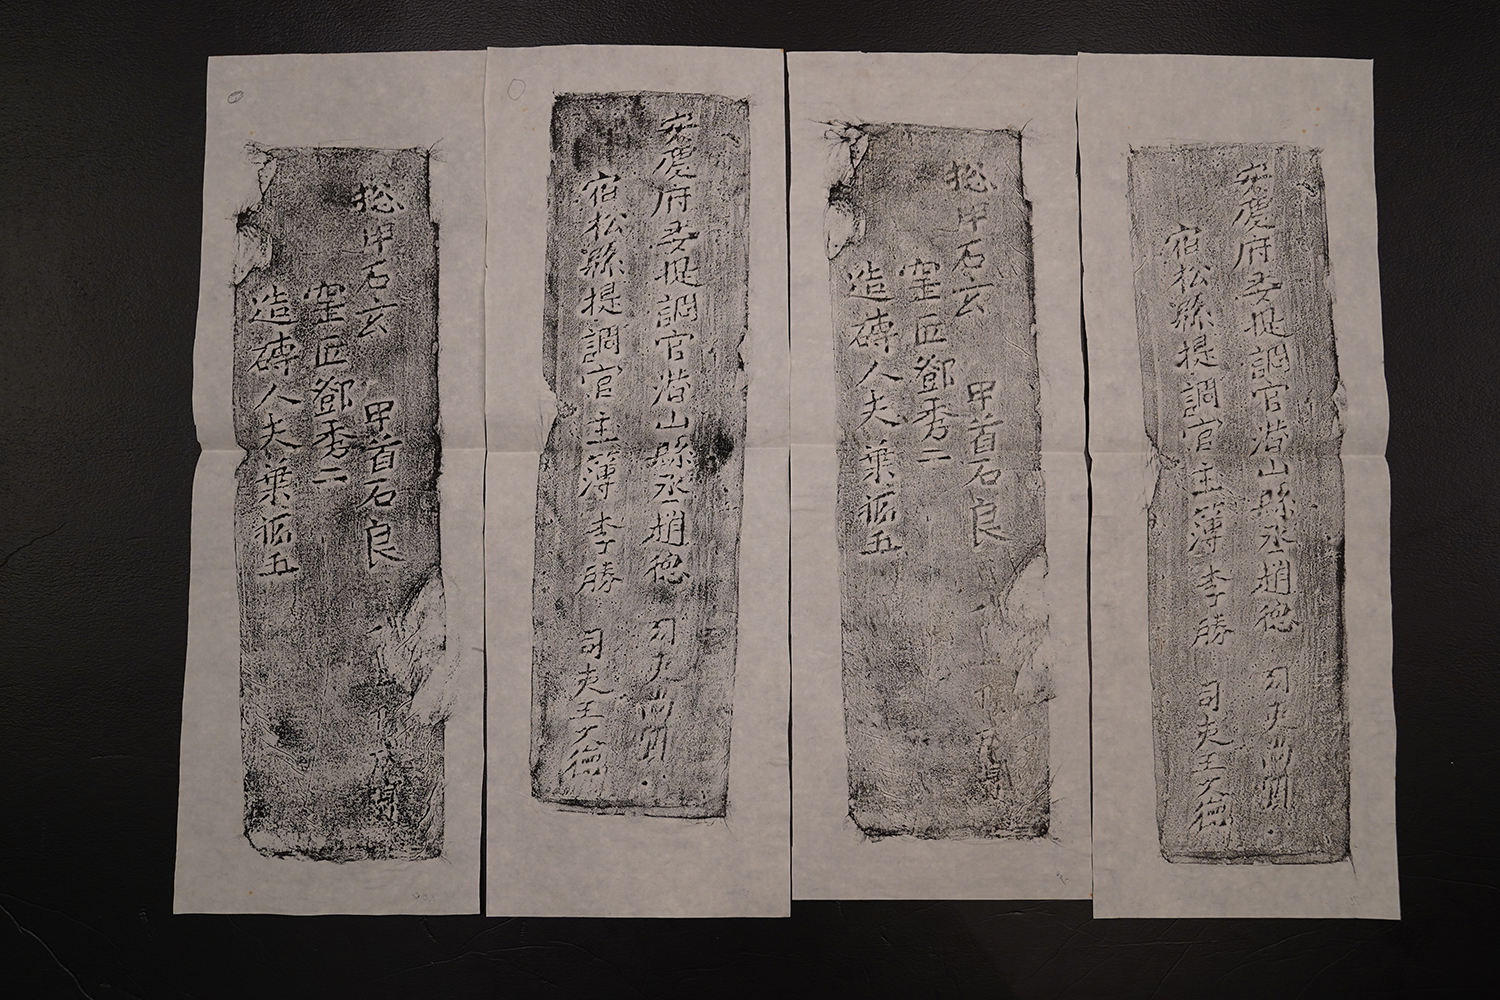 總甲石玄 甲首石良
窑匠鄧秀二
造磚人夫葉狐五
安慶府委提調官潛山縣丞趙德 司吏
宿松縣提調官主簿李勝 司吏王文德
總甲石玄 甲首石良
窑匠鄧秀二
造磚人夫葉狐五
安慶府委提調官潛山縣丞趙德 司吏
宿松縣提調官主簿李勝 司吏王文德